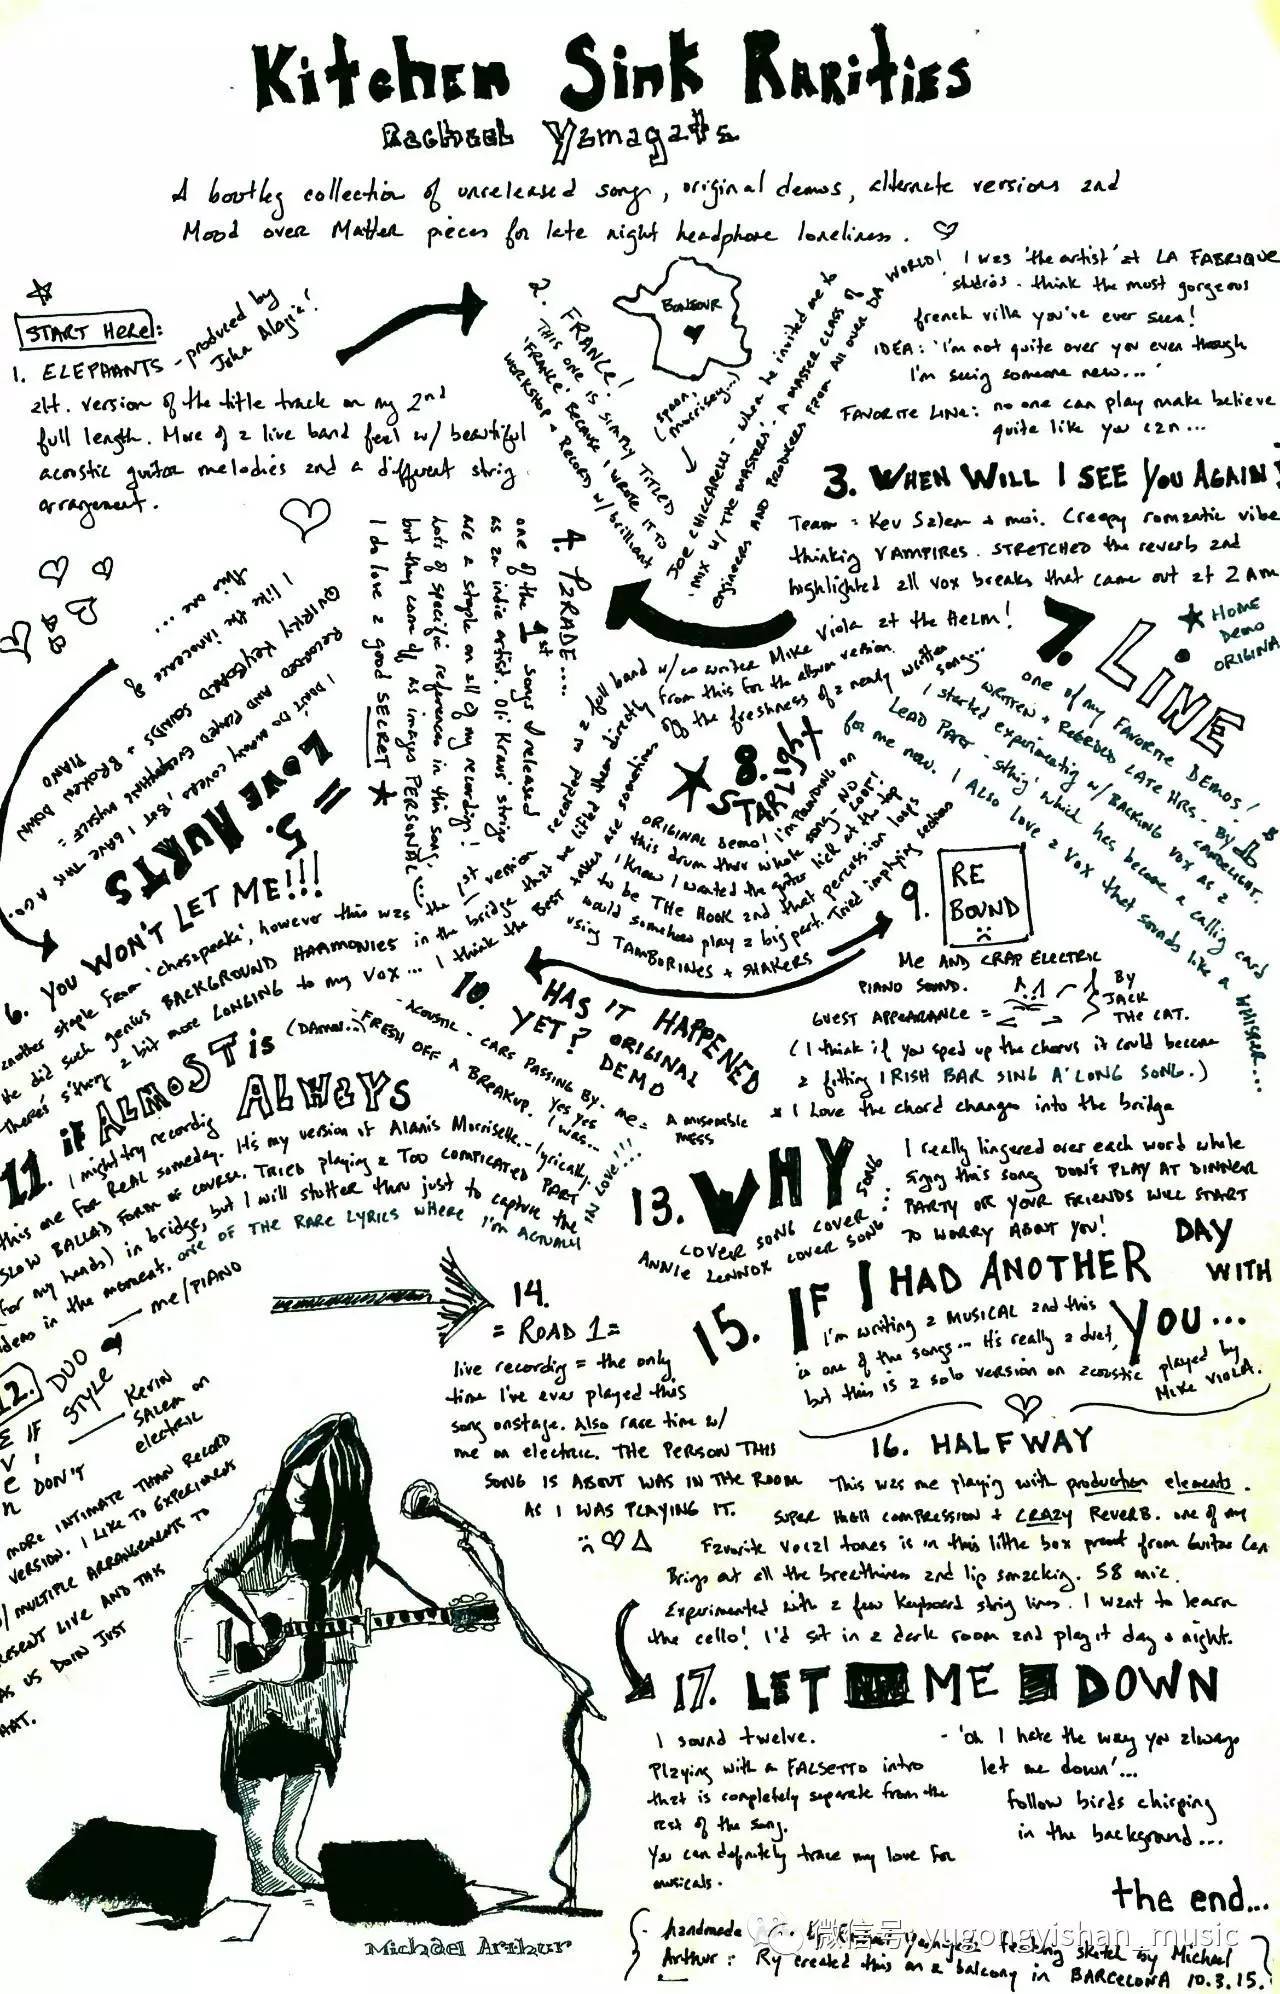 Kitchen Sink Rarities
Rachael Yamagata
A bootleg collection of unreleased songs, original demos, alternate versions and
Mood over Matter pieces for late night headphone loneliness.
START HERE:
1. ELEPHANTS - produced by
John Alagia!
alt. version of the title track on my 2nd
full length. More of a live band feel w/ beautiful
acoustic guitar melodies and a different string
arrangement.
2. FRANCE!
THIS ONE IS SIMPLY TITLED
'FRANCE' BECAUSE I WROTE IT TO
WORKSHOP & RECORD W/ brilliant
BONJOUR
(spoon,
morrissey...)
JOE CHICCARELLI - when he invited me to
'MIX W/ THE MASTERS' - A MASTER CLASS OF
engineers AND PRODUCERS FROM All over DA WORLD!
I was 'the artist' at LA FABRIQUE
studios - think the most gorgeous
french villa you've ever seen!
IDEA: 'I'm not quite over you even though
I'm seeing someone new...'
FAVORITE LINE: no one can play make believe
quite like you can...
3. WHEN WILL I SEE YOU AGAIN?
Team = Kev Salem + moi. Creepy romantic vibe
thinking VAMPIRES. STRETCHED the reverb and
highlighted all vox breaks that came out at 2 AM
4. PARADE....
one of the 1st songs I released
as an indie artist. Oli Kraus' strings
are a staple on all of my recordings!
Lots of specific references in this song,
but they come off as images PERSONAL
I do love a good SECRET
5. LOVE HURTS
I DON'T DO MANY COVERS BUT I GAVE THIS A GO.
RECORDED AND PLAYED EVERYTHING MYSELF =
QUIRKY KEYBOARD SOUNDS + BROKEN DOWN
PIANO
I like the innocence of
this one...
6. YOU WON'T LET ME!!!
another staple from 'chesapeake', however this was the 1st version
recorded as a full band w/ co writer Mike Viola at the Helm!
He did such genius BACKGROUND HARMONIES in the bridge that we lifted them directly from this for the album version.
There's s'thing a bit more LONGING to my vox... I think the BEST takes are sometimes of the freshness of a newly written song...
7. LINE
HOME
Demo
ORIGINAL
one of my FAVORITE DEMOS!
WRITTEN + RECORDED LATE HRS. - BY CANDLELIGHT.
I started experimenting w/ BACKING VOX as a
LEAD PART - s'thing which has become a calling card
for me now. I Also love a vox that sounds like a WHISPER...
8. STARLIGHT
ORIGINAL demo! I'm POUNDING ON
this drum thru whole song - NO LOOP!
I knew I wanted the guitar lick at the top
to be THE HOOK and that percussion loops
would somehow play a big part. Tried implying section
using TAMBORINES + SHAKERS
9. REBOUND
ME AND CRAP ELECTRIC
PIANO SOUND.
GUEST APPEARANCE =
BY
JACK
THE CAT.
(I think if you sped up the chorus it could become
a fitting IRISH BAR SING A'LONG SONG.)
* I Love the chord changes into the bridge
10. HAS IT HAPPENED
YET? ORIGINAL
DEMO
- ACOUSTIC - CARS PASSING BY - me =
FRESH OFF A BREAKUP. YES YES
I was...
A miserable
mess
11. if ALMOST is (DAmn..)
ALWAYS
I might try recording
this one for REAL someday. It's my version of Alanis Morrisette - lyrically.
SLOW BALLAD FORM OF COURSE. TRIED playing a TOO COMPLICATED PART
(for my hands) in bridge, but I will stutter thru just to capture the
ideas in the moment. one OF THE RARE LYRICS WHERE I'm ACTUALLY
IN LOVE!!!
12. DUO
STYLE
me/PIANO
Kevin
SALEM on
electric
EVEN IF
I DON'T
MORE INTIMATE THAN RECORD
VERSION. I LIKE TO EXPERIMENT
W/ MULTIPLE ARRANGEMENTS TO
PRESENT LIVE AND THIS
AS US DOIN JUST
THAT.
13. WHY
COVER SONG COVER SONG
ANNIE LENNOX COVER SONG
I really lingered over each word while
singing this song DON'T PLAY AT DINNER
PARTY OR YOUR FRIENDS WILL START
TO WORRY ABOUT YOU!
14.
= ROAD 1 =
live recording = the only
time I've ever played this
song onstage. Also rare time w/
me on electric. THE PERSON THIS
SONG IS ABOUT WAS IN THE ROOM
AS I WAS PLAYING IT.
15. IF I HAD ANOTHER DAY
WITH
YOU...
I'm writing a MUSICAL and this
is one of the songs... It's really a duet,
but this is a solo version on acoustic played by
MIKE VIOLA.
16. HALFWAY
This was me playing with production elements.
SUPER HIGH COMPRESSION + CRAZY REVERB. one of my
Favorite vocal tones is in this little box preset from Guitar Cen
Brings out all the breathiness and lip smacking. 58 mic.
Experimented with a few keyboard string lines. I want to learn
the cello! I'd sit in a dark room and play it day & night.
17. LET ME DOWN
I sound twelve.
Playing with a FALSETTO intro
that is completely separate from the
rest of the song.
You can definitely trace my love for
musicals.
- 'oh I hate the way you always
let me down'...
follow birds chirping
in the background...
the end...
Michael Arthur
微信号: yugongyishan_music
handmade by Yamagata featuring sketch by Michael
Arthur: RY created this on a balcony in BARCELONA 10.3.15.